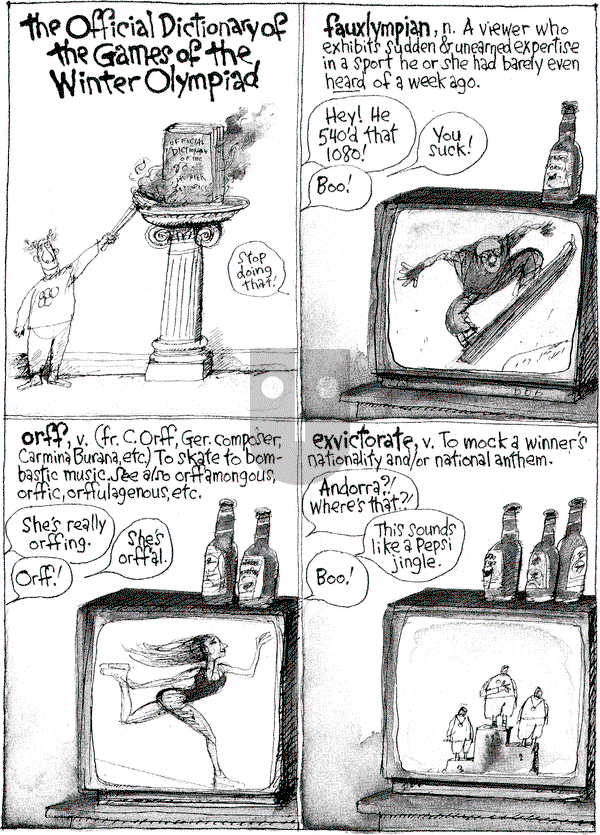 the Official Dictionary of
the Games of the
Winter Olympiad
OFFICIAL
DICTIONARY
OF THE
Stop
doing
that!
fauxlympian, n. A viewer who
exhibits sudden & unearned expertise
in a sport he or she had barely even
heard of a week ago.
Hey! He
540'd that
1080!
You
suck!
Boo!
orff, v. (fr. C. Orff, Ger. composer,
Carmina Burana, etc.) To skate to bom-
bastic music. See also orffamongous,
orffic, orffulagenous, etc.
She's really
orffing.
She's
orffal.
Orff!
exvictorate, v. To mock a winner's
nationality and/or national anthem.
Andorra?!
Where's that?!
This sounds
like a Pepsi
jingle.
Boo!
3
2